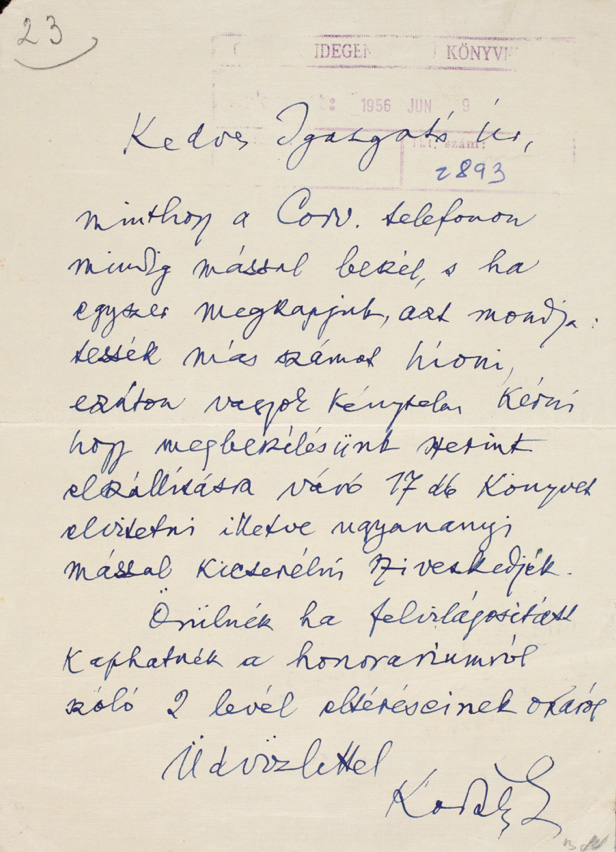 23
IDEGEN KÖNYV
1956 JUN 9
Ikt. szám:
2893
Kedves Igazgató Úr,
minthogy a Corv. telefonon
mindig mással beszél, s ha
egyszer megkapjuk, azt mondja:
tessék más számot hívni,
ezúton vagyok kénytelen kérni
hogy megbeszélésünk szerint
elszállításra váró 17 db könyvet
elvitetni illetve ugyanannyi
mással kicserélni szíveskedjék.
Örülnék ha felvilágosítást
kaphatnék a honoráriumról
szóló 2 levél eltéréseinek okáról
Üdvözlettel
Kodály Z